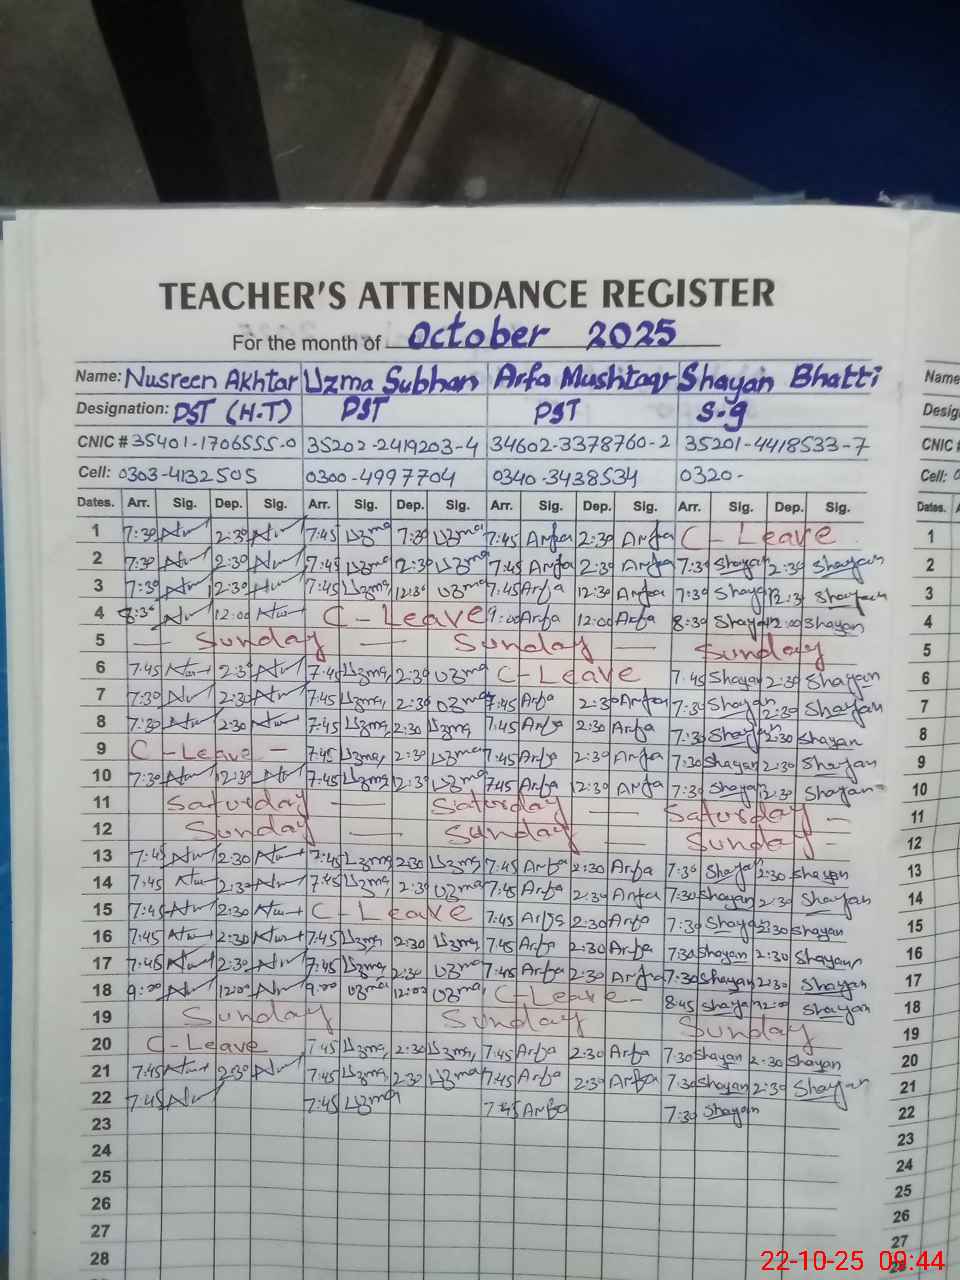 TEACHER'S ATTENDANCE REGISTER
For the month of October 2025
Name: Nusreen Akhtar Uzma Subhan Arfa Mushtaqr Shayan Bhatti Name
Designation: PST (H.T) PST PST S.g Desig
CNIC # 35401-1706555-0 35202-2419203-4 34602-3378760-2 35201-4418533-7 CNIC #
Cell: 0303-4132505 0300-4997704 0340-3438534 0320- Cell:
Dates. Arr. Sig. Dep. Sig. Arr. Sig. Dep. Sig. Arr. Sig. Dep. Sig. Arr. Sig. Dep. Sig. Dates.
1 7:30 2:30 7:45 Uzma 7:30 Uzma 7:45 Arfa 2:30 Arfa C-Leave 1
2 7:30 2:30 7:45 Uzma 2:30 Uzma 7:45 Arfa 2:30 Arfa 7:30 Shayan 2:30 Shayan 2
3 7:30 12:30 7:45 Uzma 12:30 Uzma 7:45 Arfa 12:30 Arfa 7:30 Shayan 12:30 Shayan 3
4 8:30 12:00 C-Leave 9:00 Arfa 12:00 Arfa 8:30 Shayan 12:00 Shayan 4
5 — Sunday — Sunday — Sunday 5
6 7:45 2:30 7:45 Uzma 2:30 Uzma C-Leave 7:45 Shayan 2:30 Shayan 6
7 7:30 2:30 7:45 Uzma 2:30 Uzma 7:45 Arfa 2:30 Arfa 7:30 Shayan 2:30 Shayan 7
8 7:30 2:30 7:45 Uzma 2:30 Uzma 7:45 Arfa 2:30 Arfa 7:30 Shayan 2:30 Shayan 8
9 C-Leave — 7:45 Uzma 2:30 Uzma 7:45 Arfa 2:30 Arfa 7:30 Shayan 2:30 Shayan 9
10 7:30 12:30 7:45 Uzma 12:30 Uzma 7:45 Arfa 12:30 Arfa 7:30 Shayan 12:30 Shayan 10
11 Saturday — Saturday — Saturday — 11
12 Sunday — Sunday — Sunday — 12
13 7:45 2:30 7:45 Uzma 2:30 Uzma 7:45 Arfa 2:30 Arfa 7:30 Shayan 2:30 Shayan 13
14 7:45 2:30 7:45 Uzma 2:30 Uzma 7:45 Arfa 2:30 Arfa 7:30 Shayan 2:30 Shayan 14
15 7:45 2:30 C-Leave 7:45 Arfa 2:30 Arfa 7:30 Shayan 2:30 Shayan 15
16 7:45 2:30 7:45 Uzma 2:30 Uzma 7:45 Arfa 2:30 Arfa 7:30 Shayan 2:30 Shayan 16
17 7:45 2:30 7:45 Uzma 2:30 Uzma 7:45 Arfa 2:30 Arfa 7:30 Shayan 2:30 Shayan 17
18 9:00 12:00 9:00 Uzma 12:00 Uzma C-Leave — 8:45 Shayan 12:00 Shayan 18
19 Sunday Sunday Sunday 19
20 C-Leave 7:45 Uzma 2:30 Uzma 7:45 Arfa 2:30 Arfa 7:30 Shayan 2:30 Shayan 20
21 7:45 2:30 7:45 Uzma 2:30 Uzma 7:45 Arfa 2:30 Arfa 7:30 Shayan 2:30 Shayan 21
22 7:45 7:45 Uzma 7:45 Arfa 7:30 Shayan 22
23 23
24 24
25 25
26 26
27 27
28
22-10-25 09:44